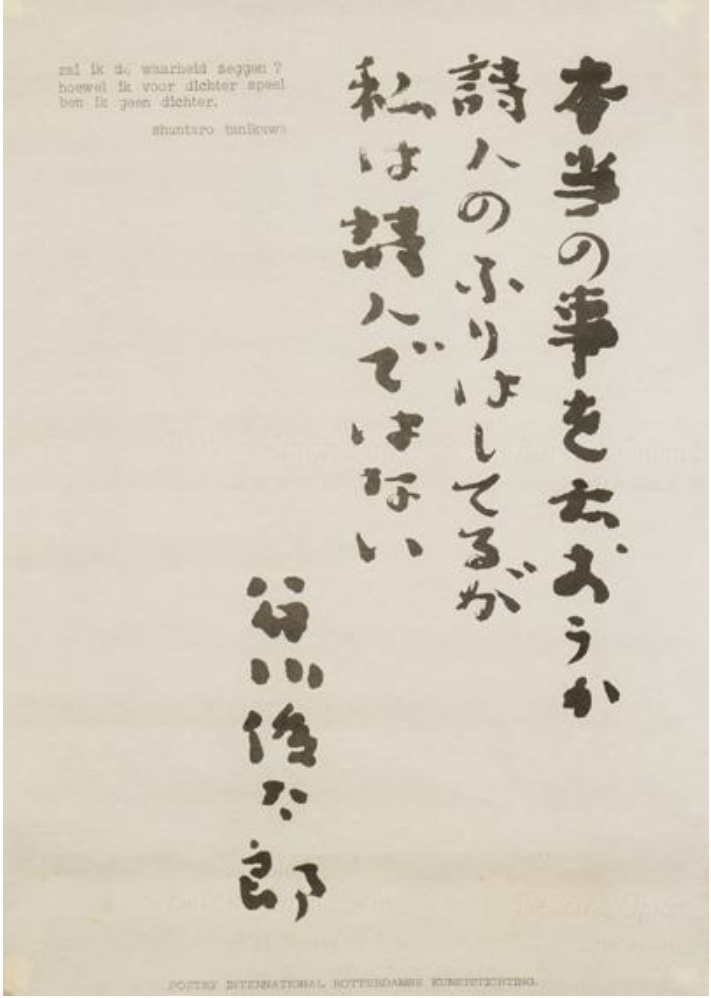 zal ik de waarheid zeggen ?
hoewel ik voor dichter speel
ben ik geen dichter.
shuntaro tanikawa
本当の事を云おうか
詩人のふりはしてるが
私は詩人ではない
谷川俊太郎
POETRY INTERNATIONAL ROTTERDAMSE KUNSTSTICHTING.